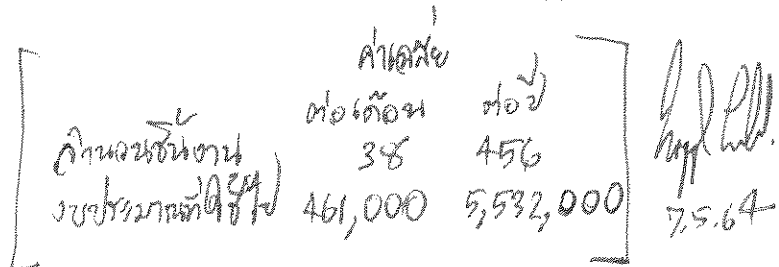 ค่าเฉลี่ย
ต่อเดือน ต่อปี
จำนวนชิ้นงาน 38 456
งบประมาณที่ใช้ไป 461,000 5,532,000
7.5.64